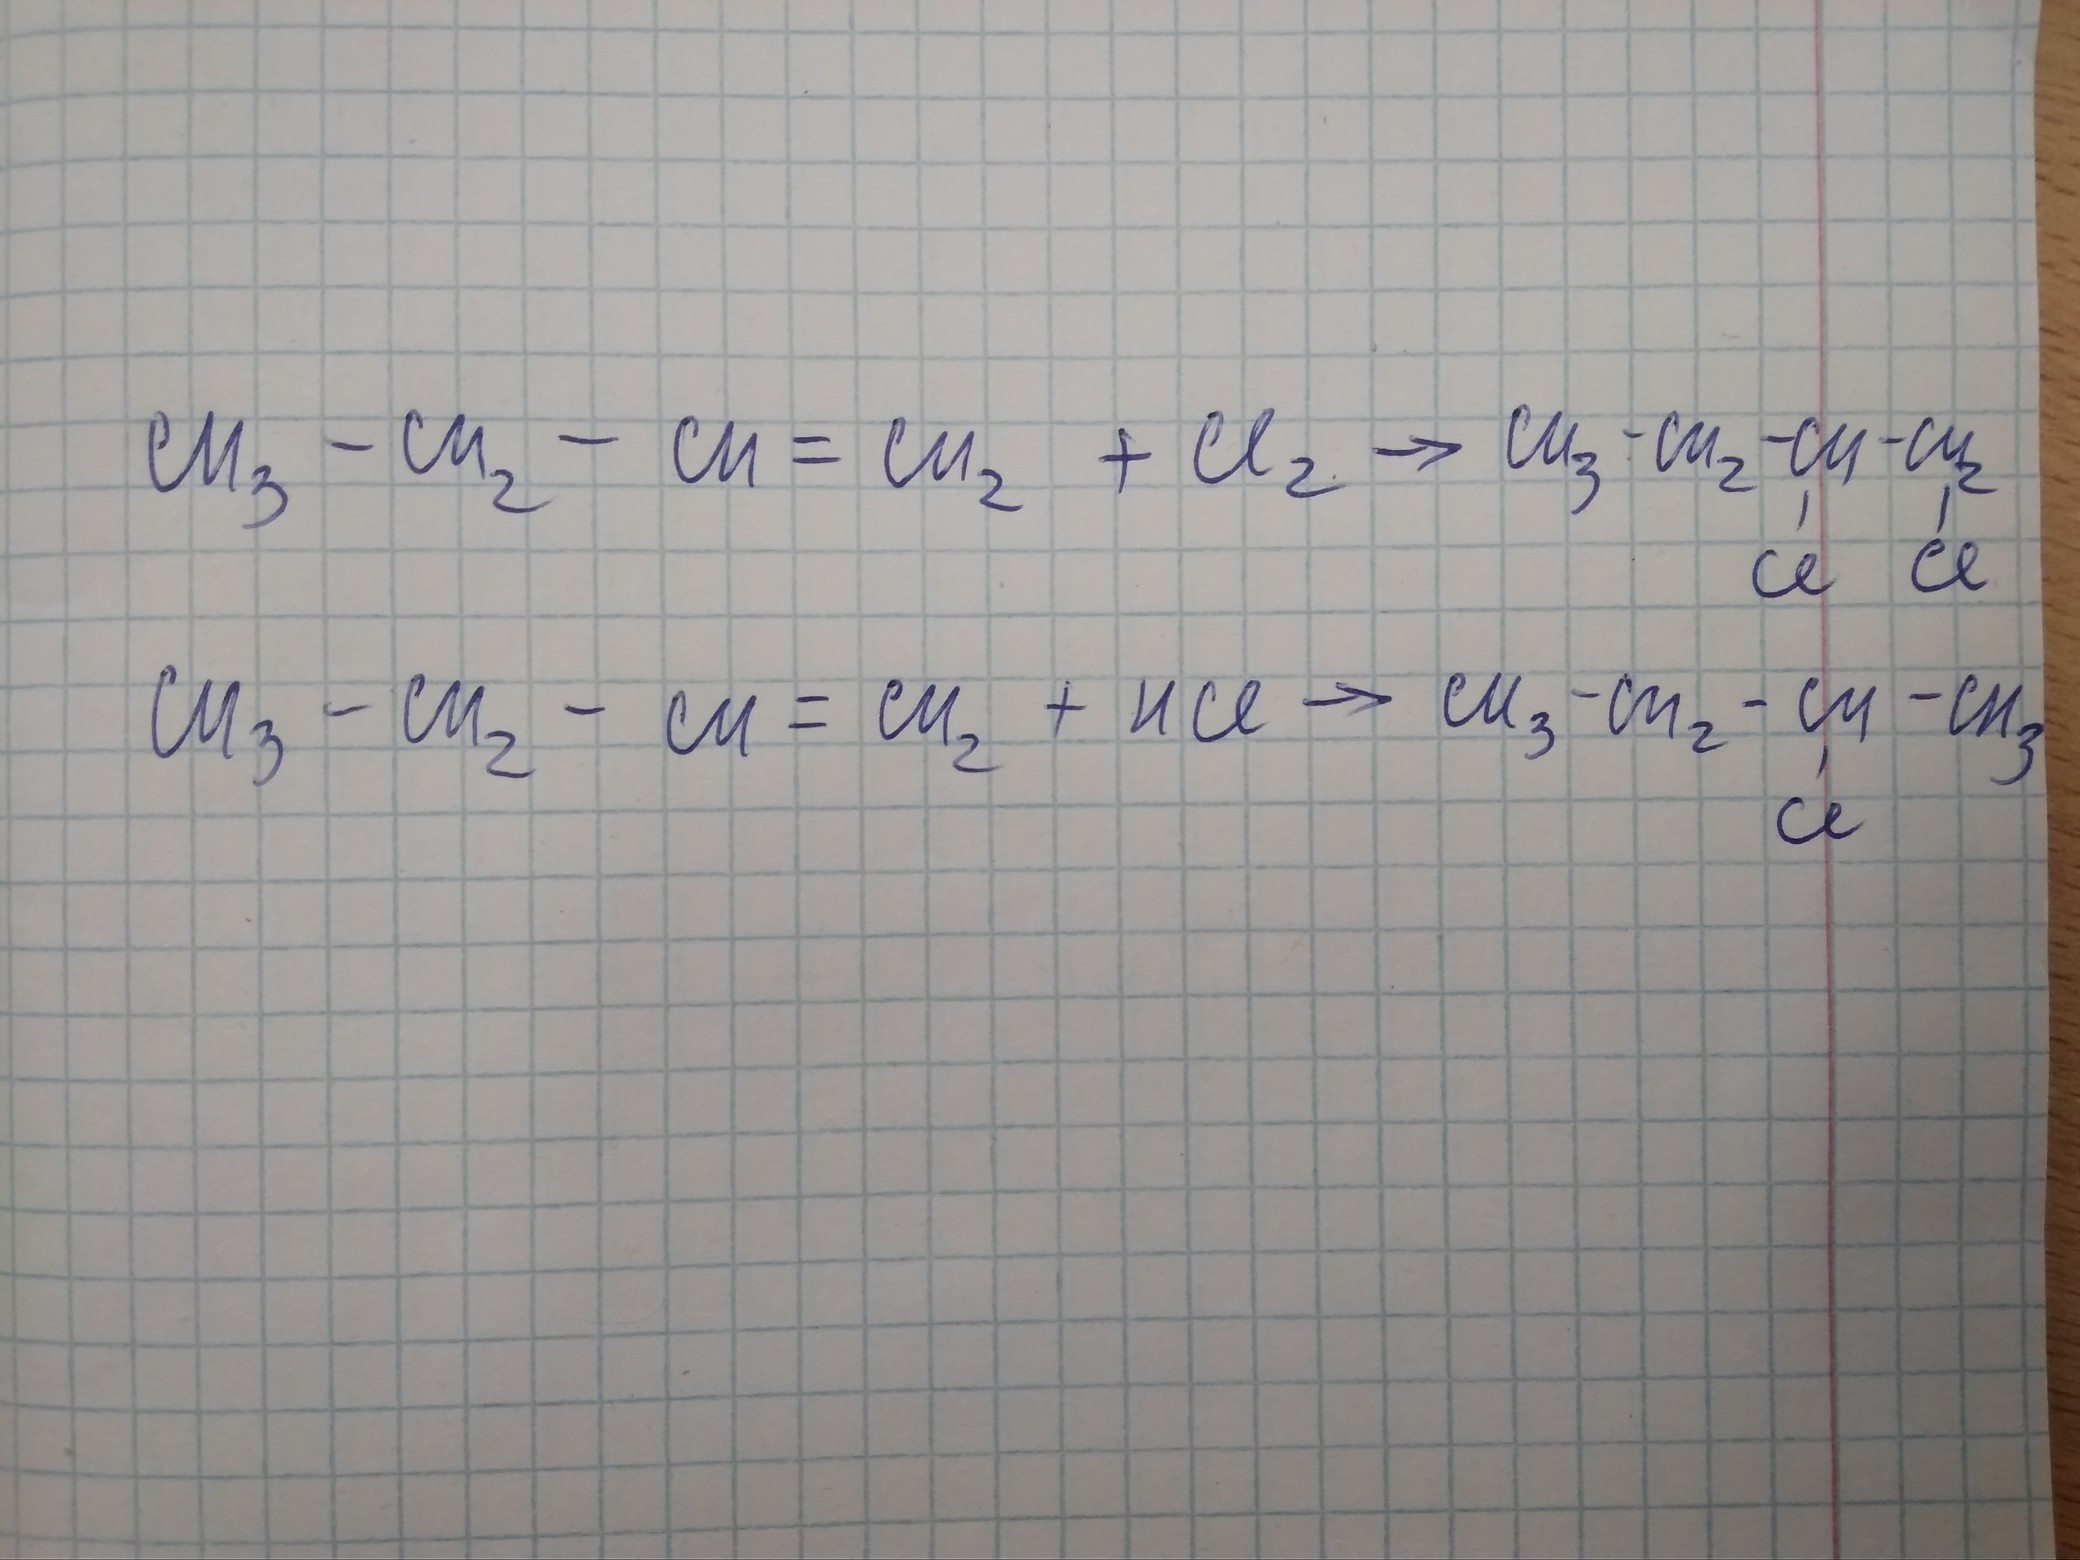 CH₃ - CH₂ - CH = CH₂ + Cl₂ → CH₃ - CH₂ - CH - CH₂
Cl Cl
CH₃ - CH₂ - CH = CH₂ + HCl → CH₃ - CH₂ - CH - CH₃
Cl